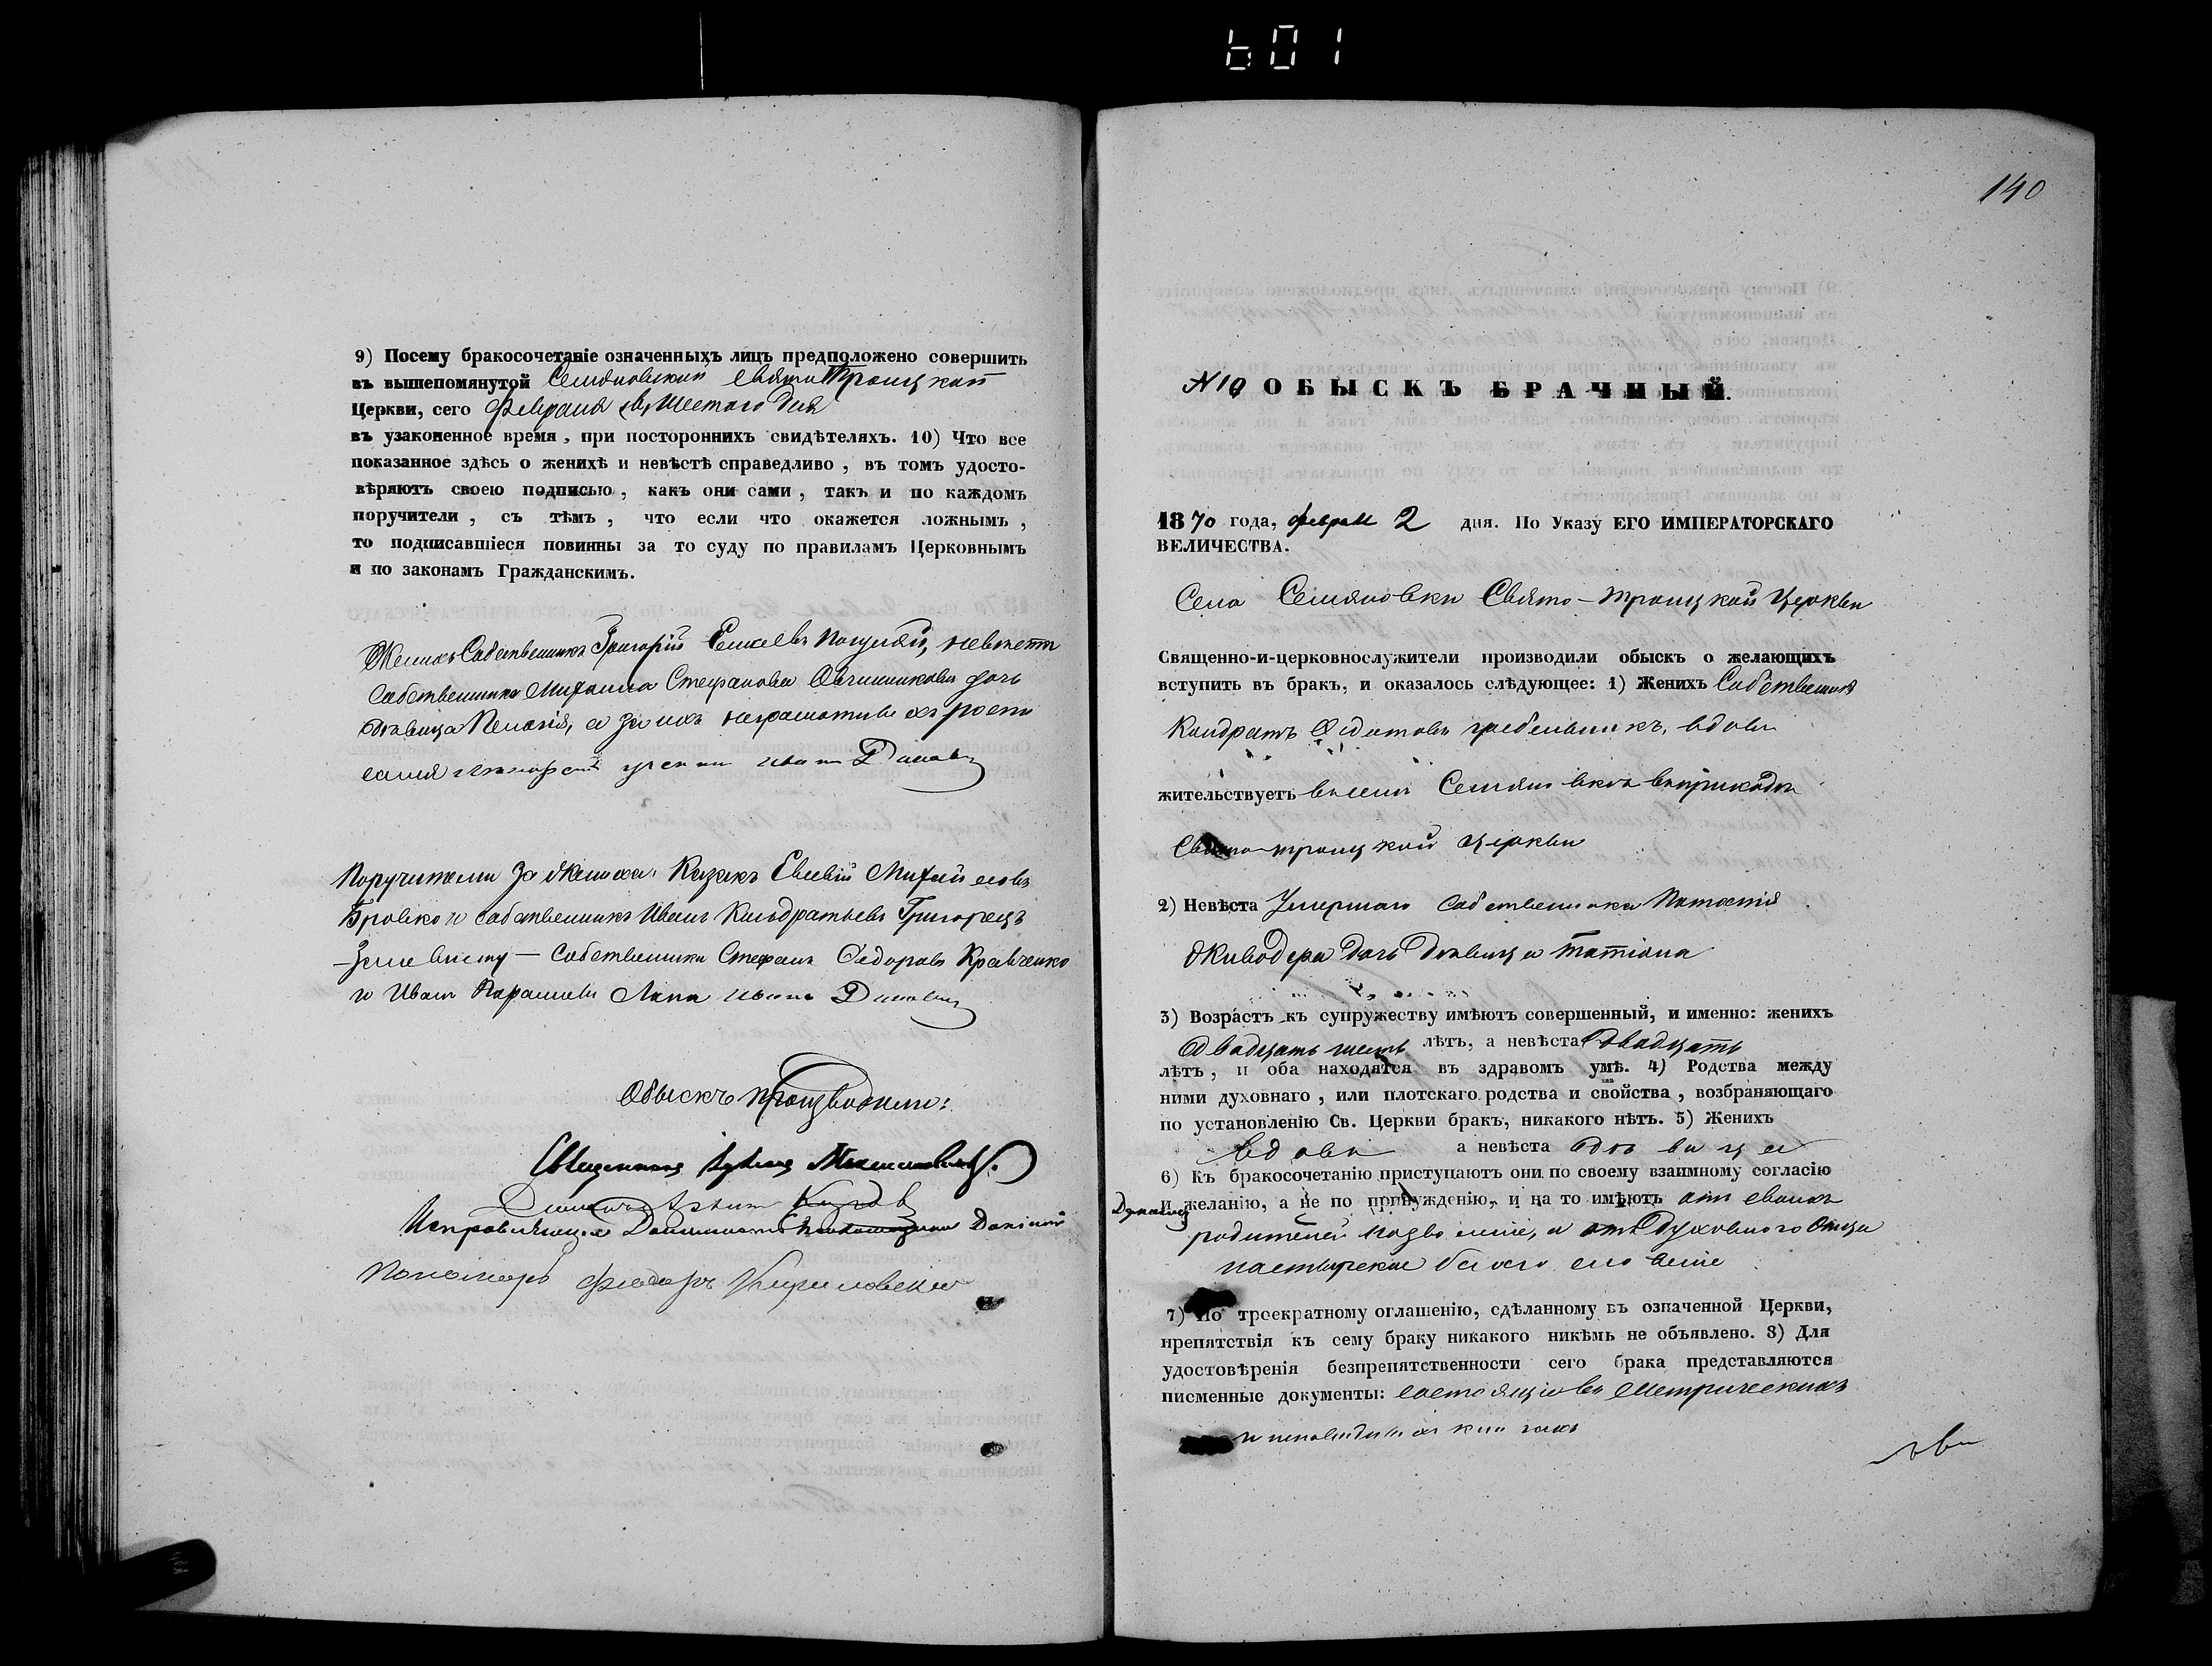 601
9) Посему бракосочетаніе означенныхъ лицъ предположено совершить
въ вышепомянутой Семяновской Свято Троицкой
Церкви, сего Февраля шестого дня
въ узаконенное время, при постороннихъ свидѣтеляхъ. 10) Что все
показанное здѣсь о женихѣ и невѣстѣ справедливо, въ томъ удосто-
вѣряютъ своею подписью, какъ они сами, такъ и по каждомъ
поручители, съ тѣмъ, что если что окажется ложнымъ,
то подписавшіеся повинны за то суду по правиламъ Церковнымъ
и по законамъ Гражданскимъ.
Женихъ Собственникъ Григорій
Собственника Михаила Стефанова Овчинникова дочь
дѣвица Пелагія, а за ихъ неграмотныхъ
Иванъ
Поручители За жениха: Казакъ Евсевій Михайловъ
Бровко и собственникъ Иванъ Кондратьевъ Григорецъ
За невѣсту — собственники Стефанъ Федоровъ Кравченко
и Иванъ Лапа Иванъ
Обыскъ производили:
Священникъ
Исправляющій Должность
Пономарь Феодоръ
140
N 10 ОБЫСКЪ БРАЧНЫЙ.
1870 года, февраля 2 дня. По Указу ЕГО ИМПЕРАТОРСКАГО
ВЕЛИЧЕСТВА.
Села Семяновки Свято-Троицкой Церкви
Священно-и-церковнослужители производили обыскъ о желающихъ
вступить въ бракъ, и оказалось слѣдующее: 1) Женихъ Собственникъ
Кондратъ Федотовъ гребельникъ, вдовъ
жительствуетъ въ селѣ Семяновкѣ въ приходѣ
Свято-троицкой церкви
2) Невѣста Умершаго собственника
Живодера дочь дѣвица Татіана
3) Возрастъ къ супружеству имѣютъ совершенный, и именно: женихъ
двадцать шесть лѣтъ, а невѣста двадцать
лѣтъ, и оба находятся въ здравомъ умѣ. 4) Родства между
ними духовнаго, или плотскаго родства и свойства, возбраняющаго
по установленію Св. Церкви бракъ, никакого нѣтъ. 5) Женихъ
вдовъ а невѣста дѣвица
6) Къ бракосочетанію приступаютъ они по своему взаимному согласію
и желанію, а не по принужденію, и на то имѣютъ отъ своихъ
родителей позволеніе, а отъ Духовного Отца
пастырское благословеніе
7) По троекратному оглашенію, сдѣланному въ означенной Церкви,
препятствія къ сему браку никакого никѣмъ не объявлено. 8) Для
удостовѣренія безпрепятственности сего брака представляются
писменные документы: состоящіе въ Метрическихъ
и исповѣдныхъ книгахъ